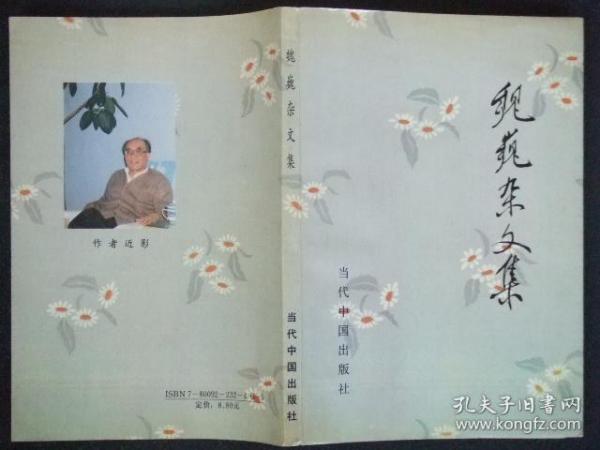 魏巍杂文集
当代中国出版社
魏巍杂文集
当代中国出版社
作者近影
ISBN 7-80092-232-
定价：8.80元
孔夫子旧书网
www.kongfz.com